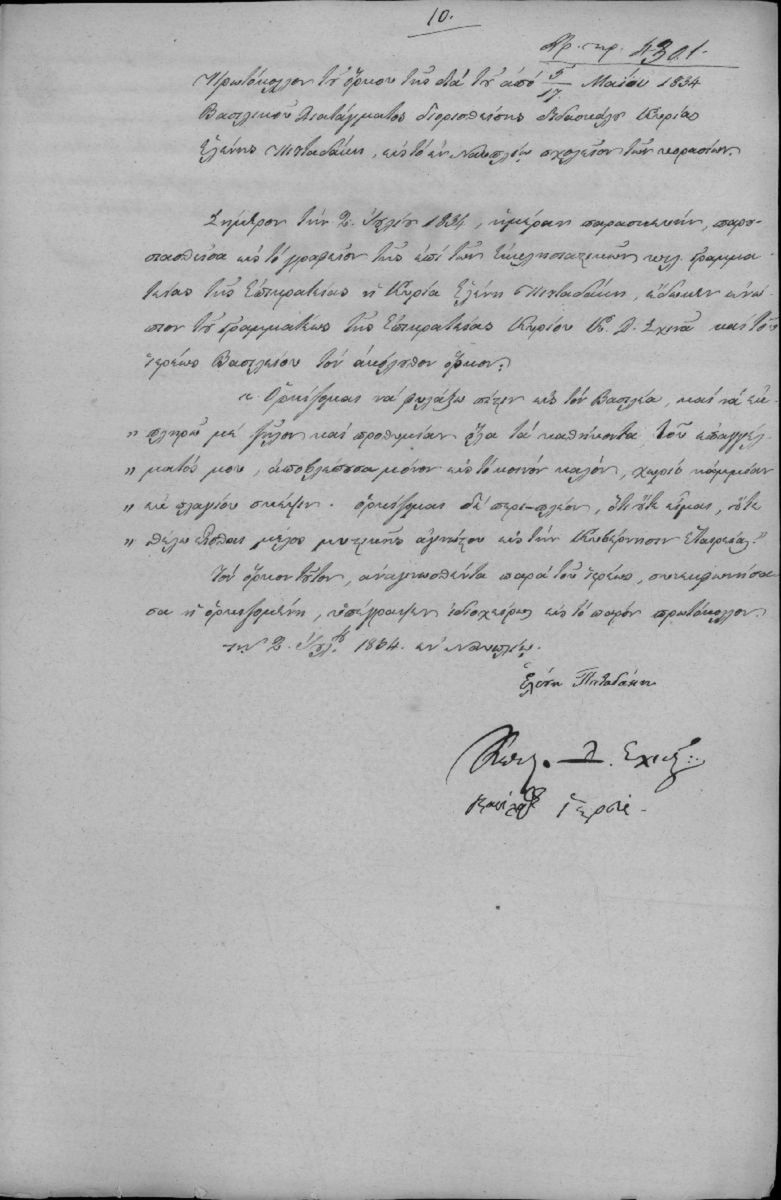 10.
Ἀρ. πρ. 4301.
Πρωτόκολλον τοῦ ὅρκου τῆς διὰ τοῦ ἀπό 5/17 Μαΐου 1834
Βασιλικοῦ Διατάγματος διορισθείσης διδασκάλου Κυρίας
Ἑλένης Πιταδάκη, εἰς τὸ ἐν Ναυπλίῳ σχολεῖον τῶν κορασίων.
Σήμερον τὴν 2. Ἰουλίου 1834, ἡμέραν παρασκευήν, παρου-
σιασθεῖσα εἰς τὸ γραφεῖον τῆς ἐπὶ τῶν Ἐκκλησιαστικῶν κτλ. Γραμμα-
τείας τῆς Ἐπικρατείας ἡ Κυρία Ἑλένη Πιταδάκη, ἔδωκεν ἐνώ-
πιον τοῦ Γραμματέως τῆς Ἐπικρατείας Κυρίου Κ. Δ. Σχινᾶ καὶ τοῦ
ἱερέως Βασιλείου τὸν ἀκόλουθον ὅρκον.
« Ὁρκίζομαι νὰ φυλάξω πίστιν εἰς τὸν Βασιλέα, καὶ νὰ ἐκ-
„ πληρῶ μὲ ζῆλον καὶ προθυμίαν ὅλα τὰ καθήκοντα τοῦ ἐπαγγέλ-
„ ματός μου, ἀποβλέπουσα μόνον εἰς τὸ κοινὸν καλόν, χωρὶς κᾀμμίαν
„ ἐκ πλαγίου σκέψιν. ὁρκίζομαι δὲ περιπλέον, ὅτι οὔτε εἶμαι, οὔτε
„ θέλω εἶσθαι μέλος μυστικῆς ἀγνώστου εἰς τὴν Κυβέρνησιν Ἑταιρείας.“
Τὸν ὅρκον τοῦτον, ἀναγνωσθέντα παρὰ τοῦ ἱερέως, συνεκφωνήσα-
σα ἡ ὁρκιζομένη, ὑπέγραψεν ἰδιοχείρως εἰς τὸ παρὸν πρωτόκολλον.
τῇ 2. Ἰουλίου 1834. ἐν Ναυπλίῳ.
Ἑλένη Πιταδάκη
Κωνσ. Δ. Σχινᾶς
Βασίλειος ἱερεὺς